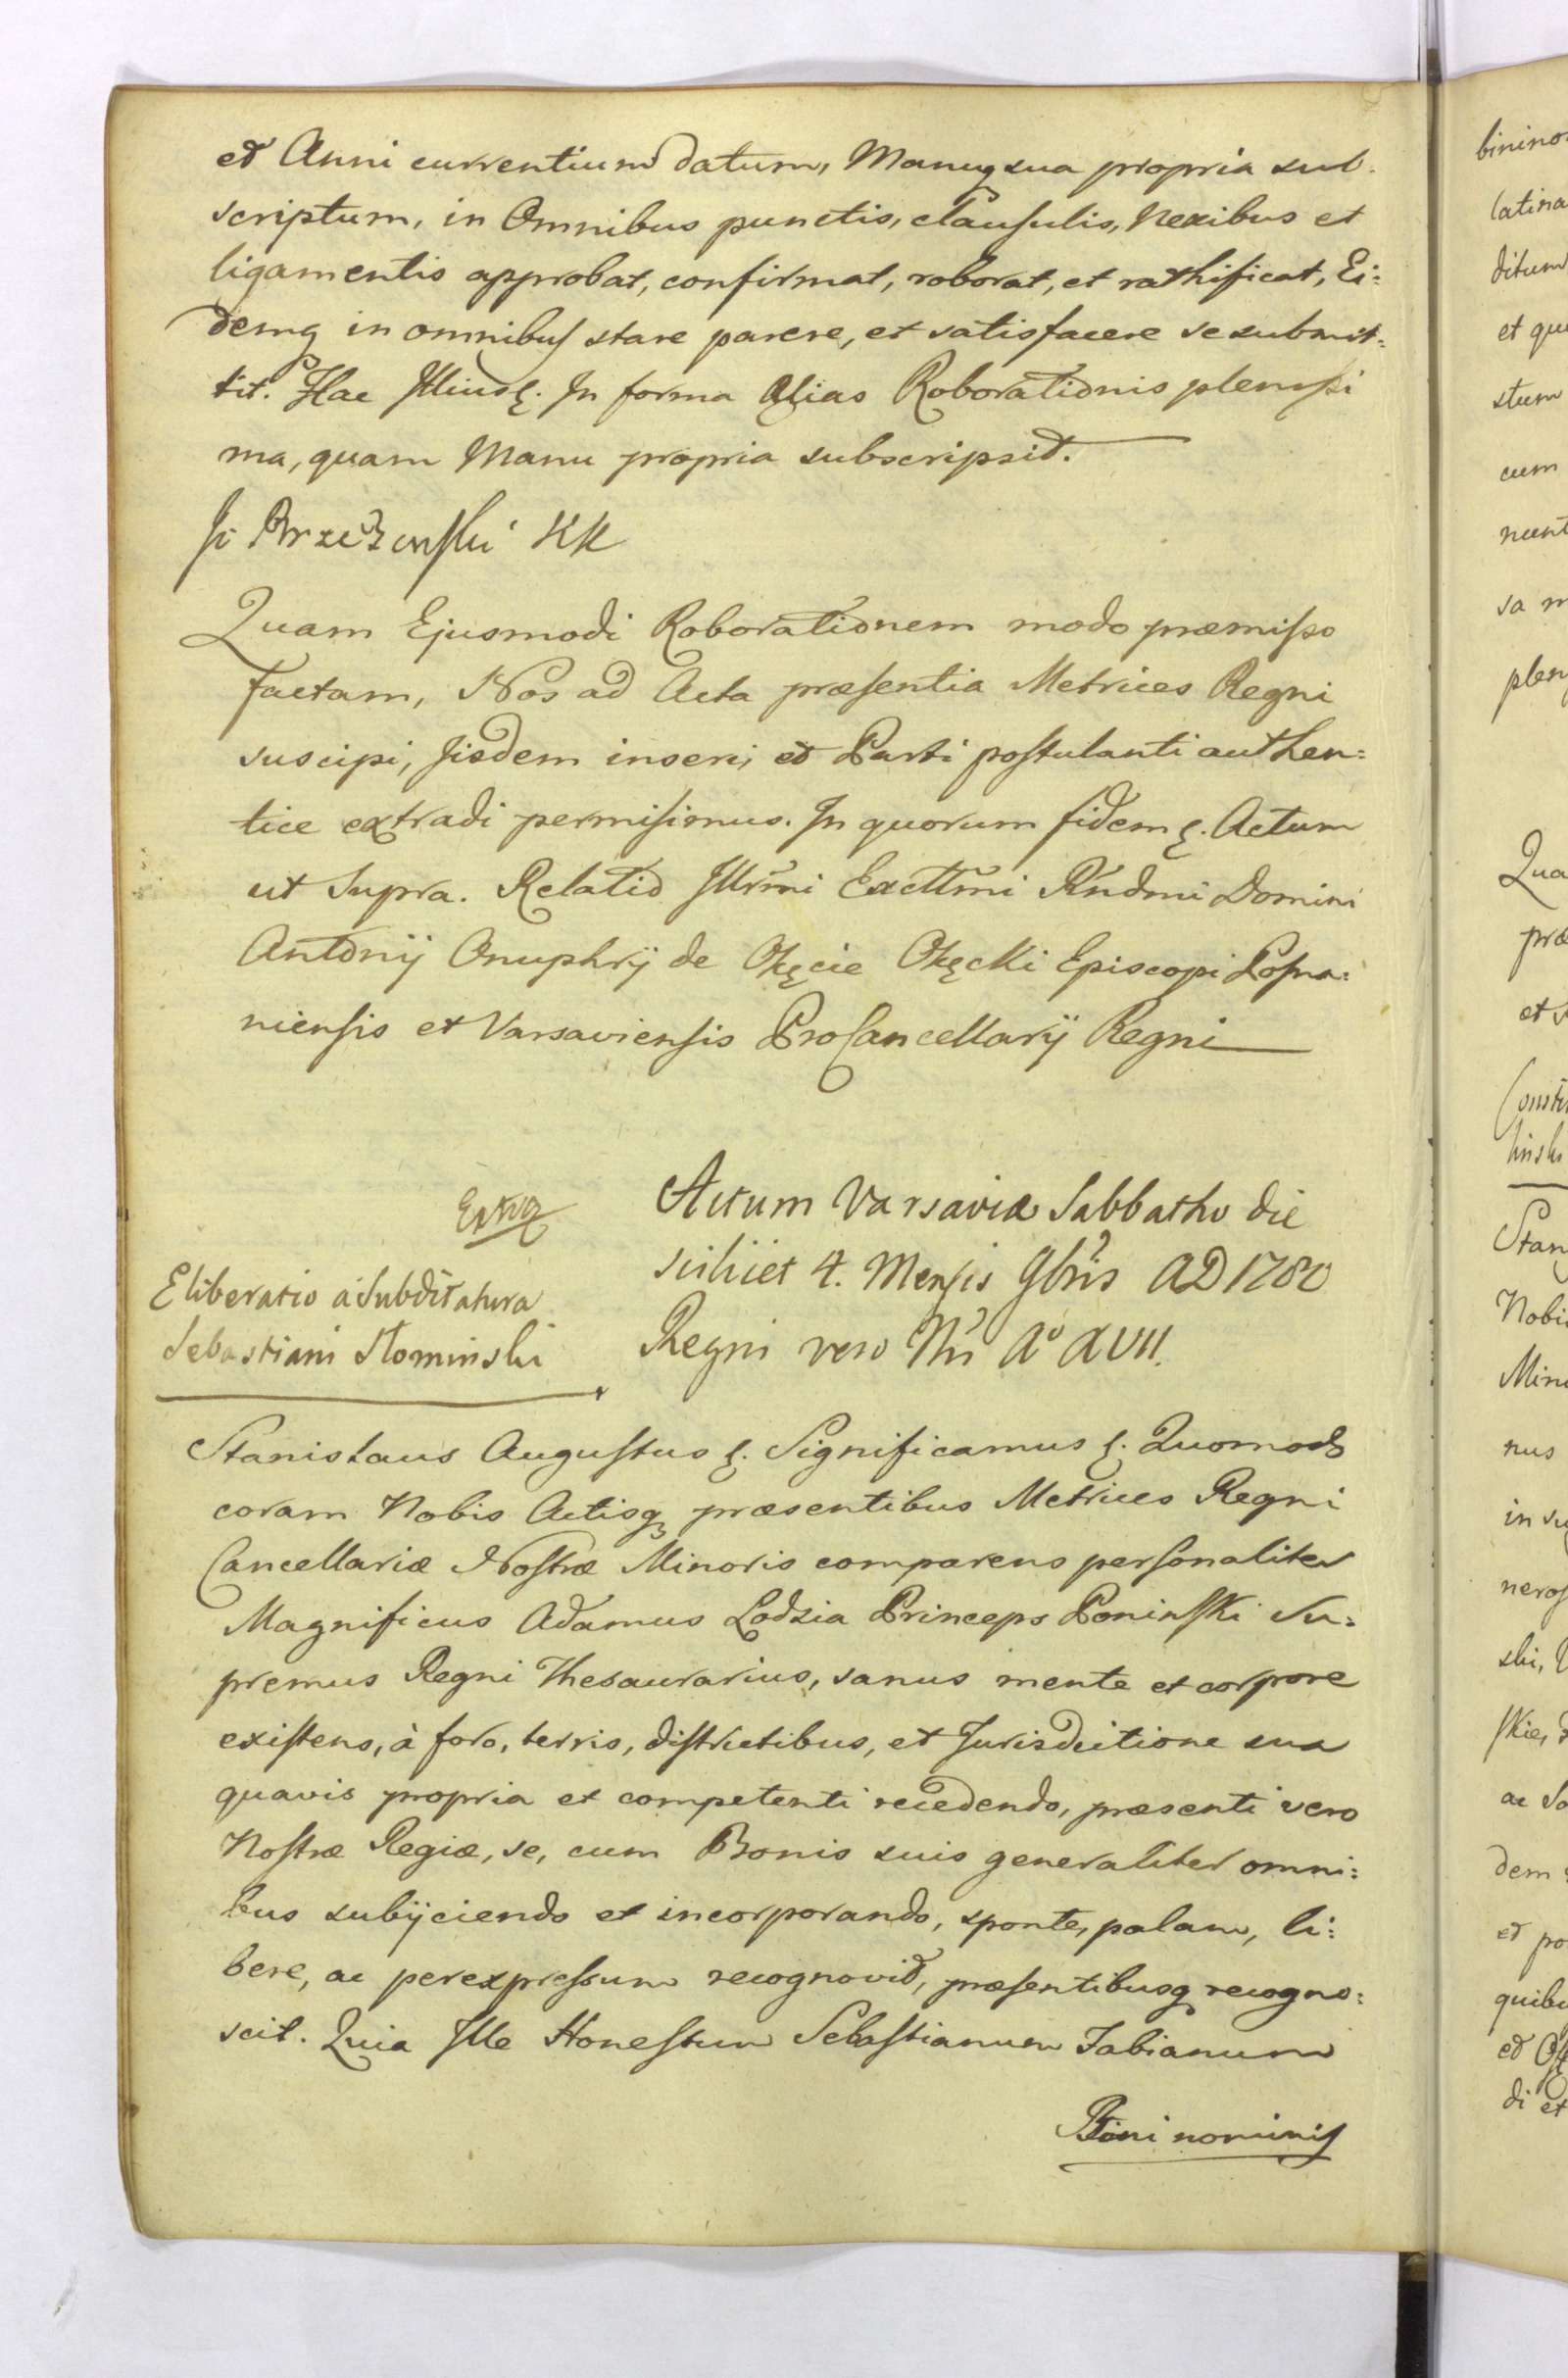 et Anni currentium datum, Manuq sua propria sub.
scriptum, in Omnibus punctis, clausulis, Nexibus et
ligamentis approbat, confirmat, roborat, et rathificat, Ei:
demq in omnibus stare parere, et satisfacere se submit:
tit. Hac Illius ę. In forma Alias Roborationis plenissi
ma, quam Manu propria subscripsit.
Brzezinski KK
Quam Ejusmodi Roborationem modo præmisso
factam, Nos ad Acta præsentia Metrices Regni
suscipi, Iisdem inseri, et Parti postulanti authen:
tice extradi permisimus. In quorum fidem ę. Actum
ut Supra. Relatio Illrmi Excttmi Rndmi Domini
Antonij Onuphrij de Okęcie Okęcki Episcopi Posna:
niensis et Varsaviensis ProCancellarij Regni
Extra
Actum Varsaviæ Sabbatho die
scilicet 4. Mensis 9bris AD 1780
Regni vero Nri Aº XVII.
Eliberatio a Subditatura
Sebastiani Słominski
Stanislaus Augustus ę. Significamus ę. Quomodo
coram Nobis Actisq præsentibus Metrices Regni
Cancellariæ Nostræ Minoris comparens personaliter
Magnificus Adamus Lodzia Princeps Poninski Su:
premus Regni Thesaurarius, sanus mente et corpore
existens, à foro, terris, districtibus, et Jurisdictione sua
quavis propria et competenti recedendo, præsenti vero
Nostræ Regiæ, se, cum Bonis suis generaliter omni:
bus subijciendo et incorporando, sponte, palam, li:
bere, ac per expressum recognovit, præsentibusq recogno:
scit. Quia Ille Honestum Sebastianum Fabianum
Bini nominis